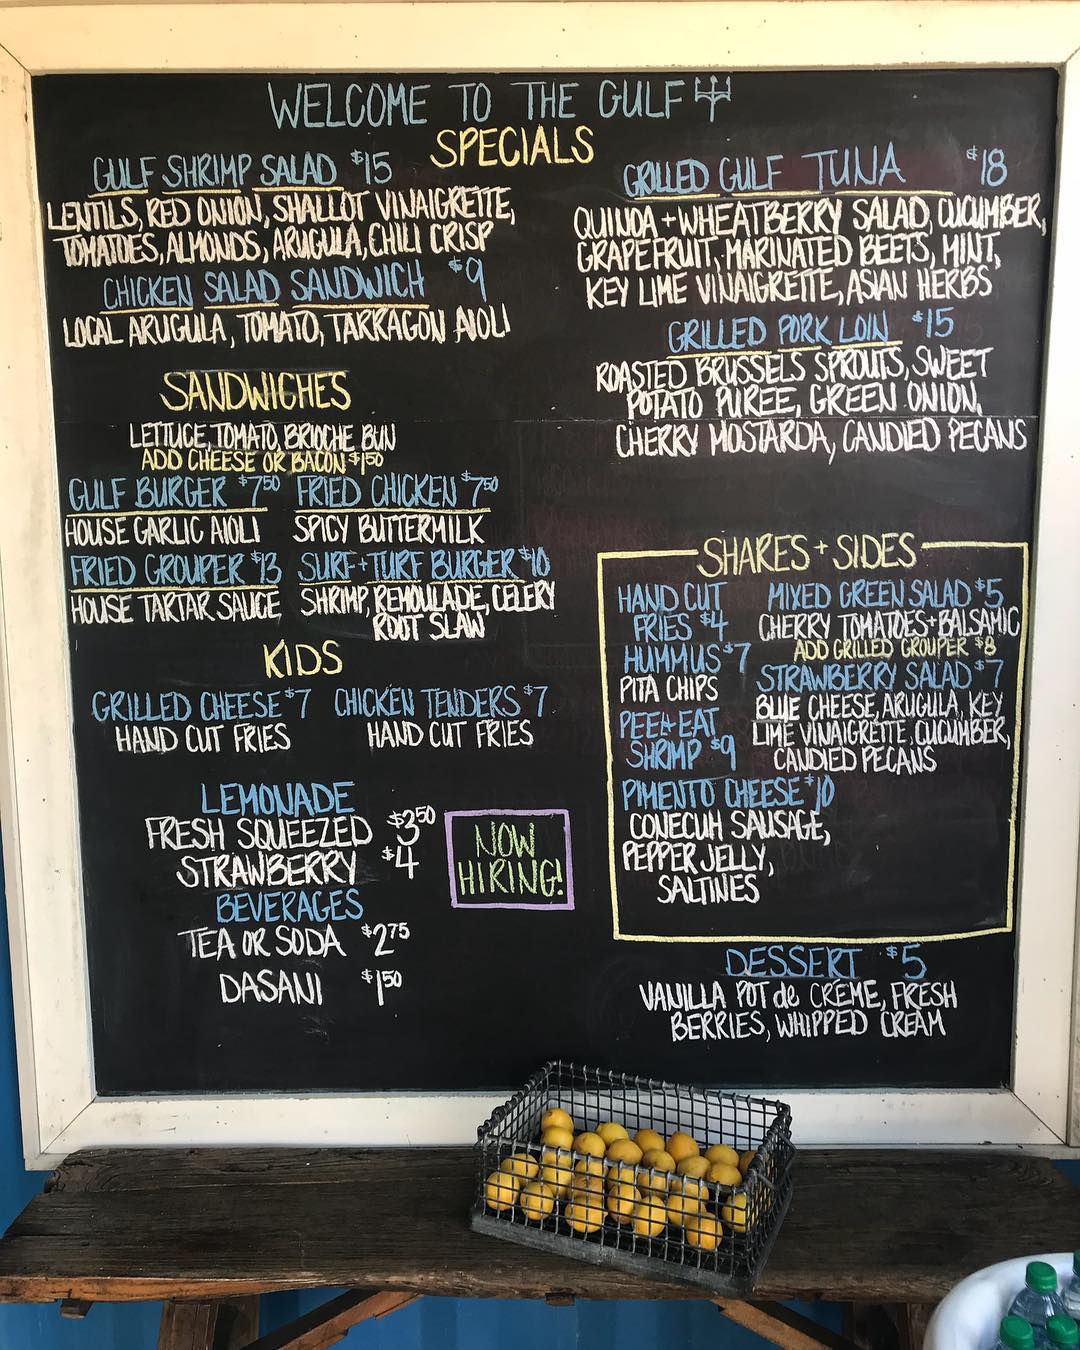 WELCOME TO THE GULF
SPECIALS
GULF SHRIMP SALAD $15
LENTILS, RED ONION, SHALLOT VINAIGRETTE,
TOMATOES, ALMONDS, ARUGULA, CHILI CRISP
CHICKEN SALAD SANDWICH $9
LOCAL ARUGULA, TOMATO, TARRAGON AIOLI
GRILLED GULF TUNA $18
QUINOA + WHEATBERRY SALAD, CUCUMBER,
GRAPEFRUIT, MARINATED BEETS, MINT,
KEY LIME VINAIGRETTE, ASIAN HERBS
GRILLED PORK LOIN $15
ROASTED BRUSSELS SPROUTS, SWEET
POTATO PUREE, GREEN ONION,
CHERRY MOSTARDA, CANDIED PECANS
SANDWICHES
LETTUCE, TOMATO, BRIOCHE BUN
ADD CHEESE OR BACON $1.50
GULF BURGER $7.50
HOUSE GARLIC AIOLI
FRIED CHICKEN $7.50
SPICY BUTTERMILK
FRIED GROUPER $13
HOUSE TARTAR SAUCE
SURF + TURF BURGER $10
SHRIMP, REMOULADE, CELERY
ROOT SLAW
KIDS
GRILLED CHEESE $7
HAND CUT FRIES
CHICKEN TENDERS $7
HAND CUT FRIES
LEMONADE
FRESH SQUEEZED $3.50
STRAWBERRY $4
BEVERAGES
TEA OR SODA $2.75
DASANI $1.50
NOW
HIRING!
SHARES + SIDES
HAND CUT
FRIES $4
HUMMUS $7
PITA CHIPS
PEEL + EAT
SHRIMP $9
PIMENTO CHEESE $10
CONECUH SAUSAGE,
PEPPER JELLY,
SALTINES
MIXED GREEN SALAD $5
CHERRY TOMATOES + BALSAMIC
ADD GRILLED GROUPER $8
STRAWBERRY SALAD $7
BLUE CHEESE, ARUGULA, KEY
LIME VINAIGRETTE, CUCUMBER,
CANDIED PECANS
DESSERT $5
VANILLA POT de CRÈME, FRESH
BERRIES, WHIPPED CREAM